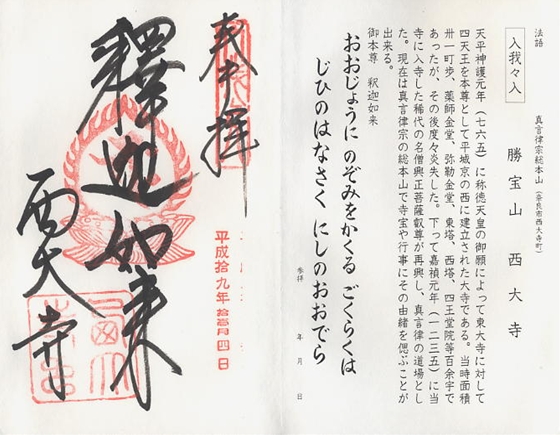 法語
入我々入
真言律宗総本山（奈良市西大寺町）
勝宝山　西大寺
天平神護元年（七六五）に称徳天皇の御願によって東大寺に対して
四天王を本尊として平城京の西に建立された大寺である。当時面積
卅一町歩、薬師金堂、弥勒金堂、東塔、西塔、四王堂院等百余宇で
あったが、その後度々炎失した。下って嘉禎元年（一二三五）に当
寺に入寺した稀代の名僧興正菩薩叡尊が再興し、真言律の道場とし
た。現在は真言律宗の総本山で寺宝や行事にその由緒を偲ぶことが
出来る。
御本尊　釈迦如来
おおじょうに のぞみをかくる ごくらくは
じひのはなさく にしのおおでら
参拝　年　月　日
奉拝
平成拾九年拾壱月四日
釋迦如来
西大寺